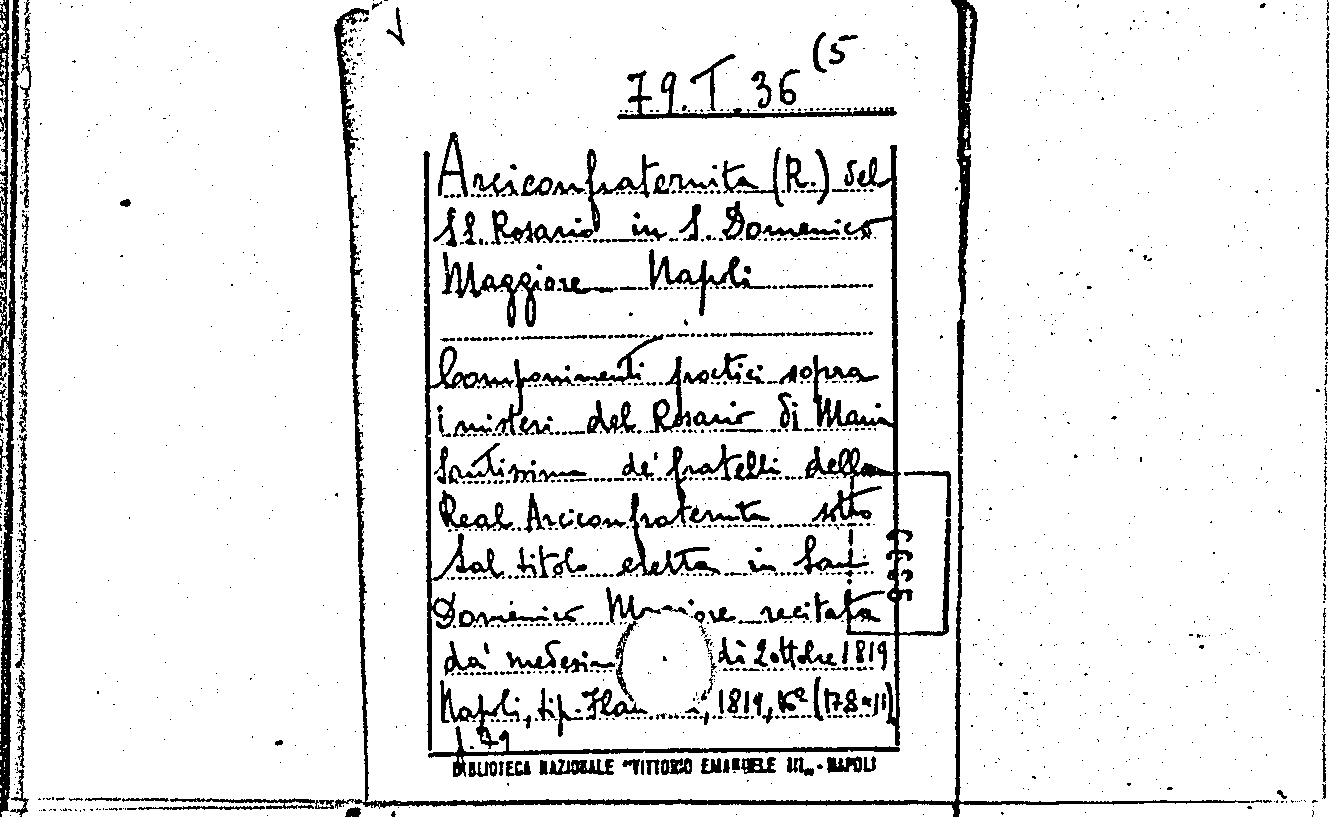 79.T.36 (5
Arciconfraternita (R.) del
SS. Rosario in S. Domenico
Maggiore Napoli
Componimenti poetici sopra
i misteri del Rosario di Maria
Santissima de' fratelli della
Real Arciconfraternita sotto
tal titolo eretta in San
Domenico recitata
da' di 2 ottobre 1819
Napoli, tip. 1819, 16º
p. 79
BIBLIOTECA NAZIONALE "VITTORIO EMANUELE III„ - NAPOLI